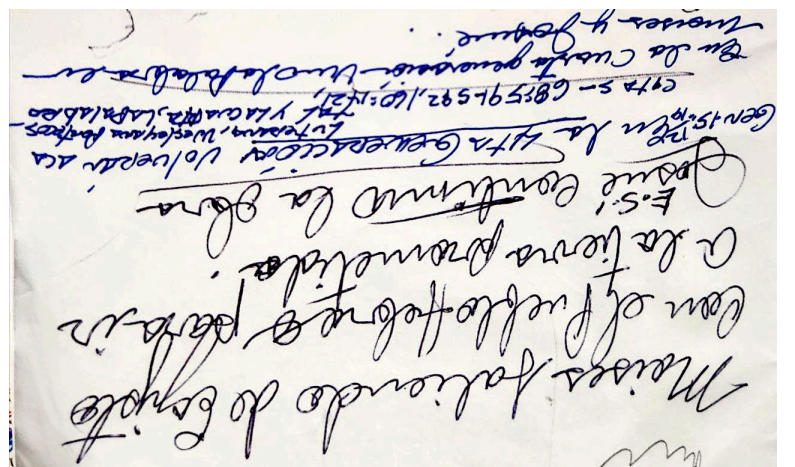 Moises saliendo de Egipto
con el pueblo Hebreo para ir
a la tierra prometida.
E.S!
Josué continuó la obra
Gen-15:16 En la 4ta Generación volverán acá
Luterana, Wesleyana Pentecos-
tal y la cuarta, la Palabra
En la Cuarta generación vino la Palabra en
Moises y Josue.